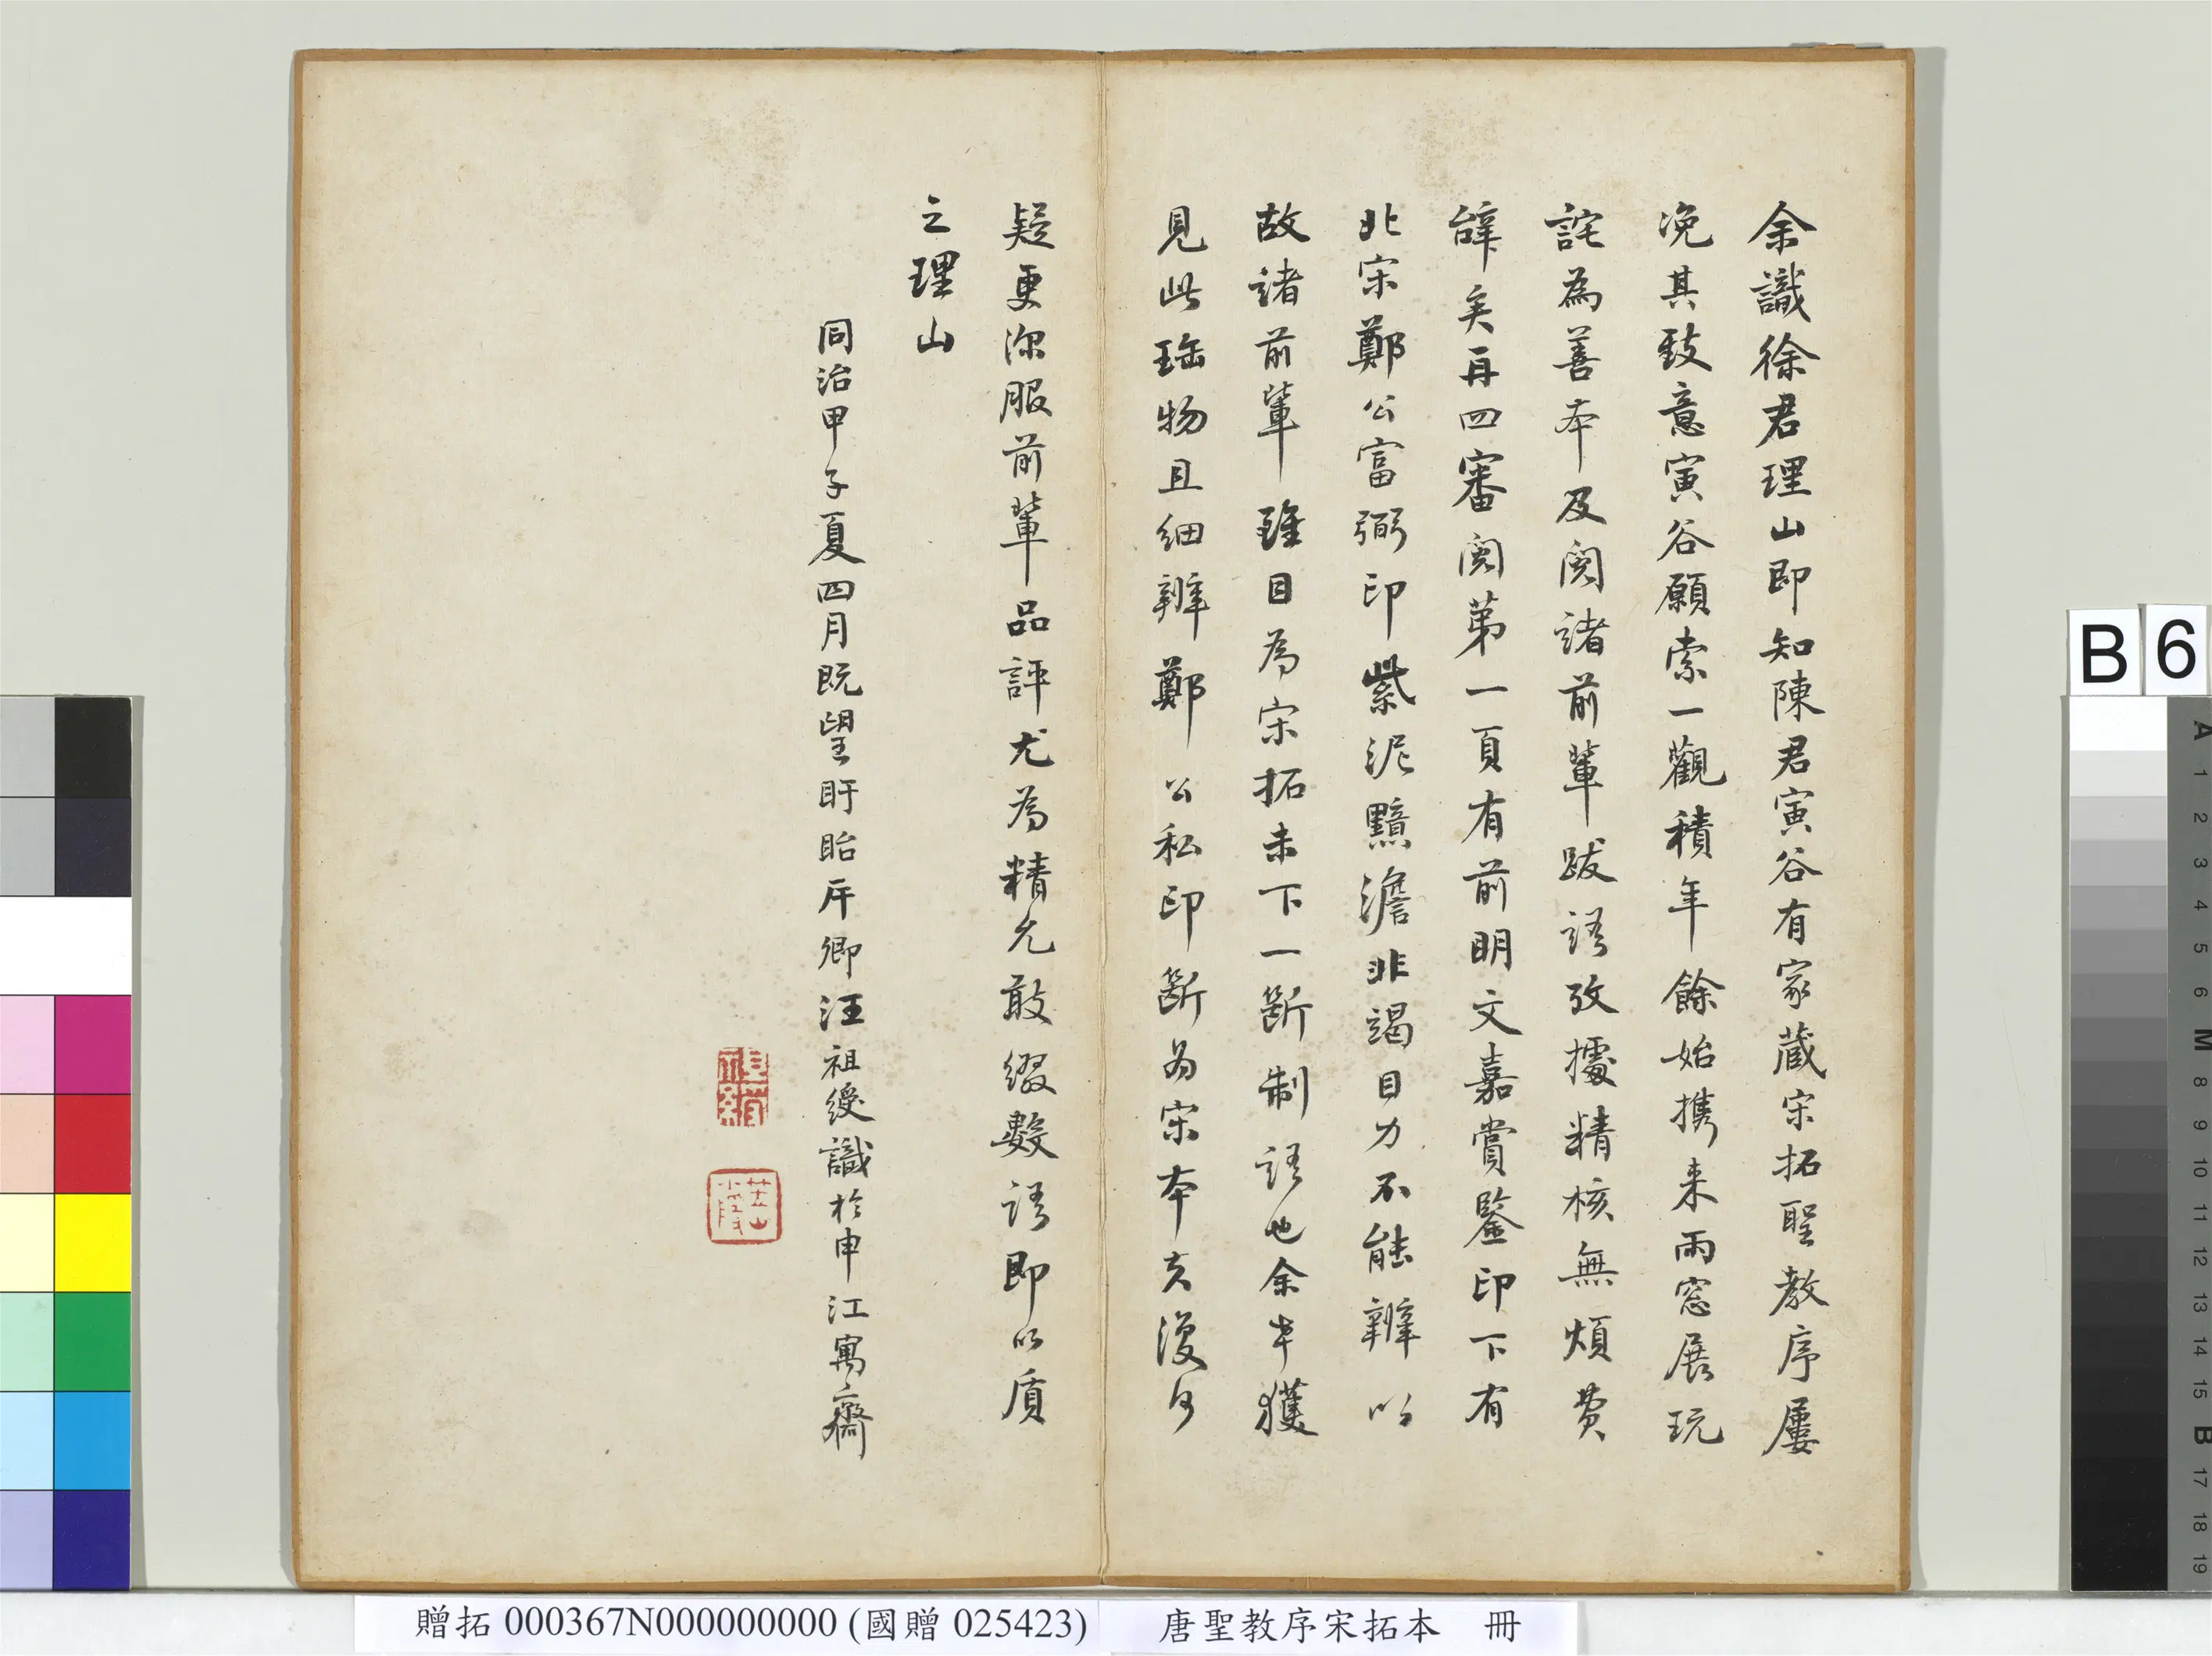 余識徐君理山即知陳君寅谷有家蔵宋拓聖教序屢
浼其致意寅谷願索一觀積年餘始携来雨窓展玩
詫為善本及閱諸前輩跋語攷據精核無煩費
辭矣再四審閱第一頁有前明文嘉賞鑒印下有
北宋鄭公富弼印紫泥黯澹非竭目力不能辨以
故諸前輩雖目為宋拓未下一斷制語也余幸獲
見此珤物且細辨鄭公私印斷為宋本夫復何
疑更深服前輩品評尤為精允敢綴數語即以質
之理山
同治甲子夏四月既望盱眙岸卿汪祖綬識於申江寓齋
祖綬
B 6
A 1 2 3 4 5 6 M 8 9 10 11 12 13 14 15 B 17 18 19
贈拓 000367N000000000 (國贈 025423) 唐聖教序宋拓本 冊